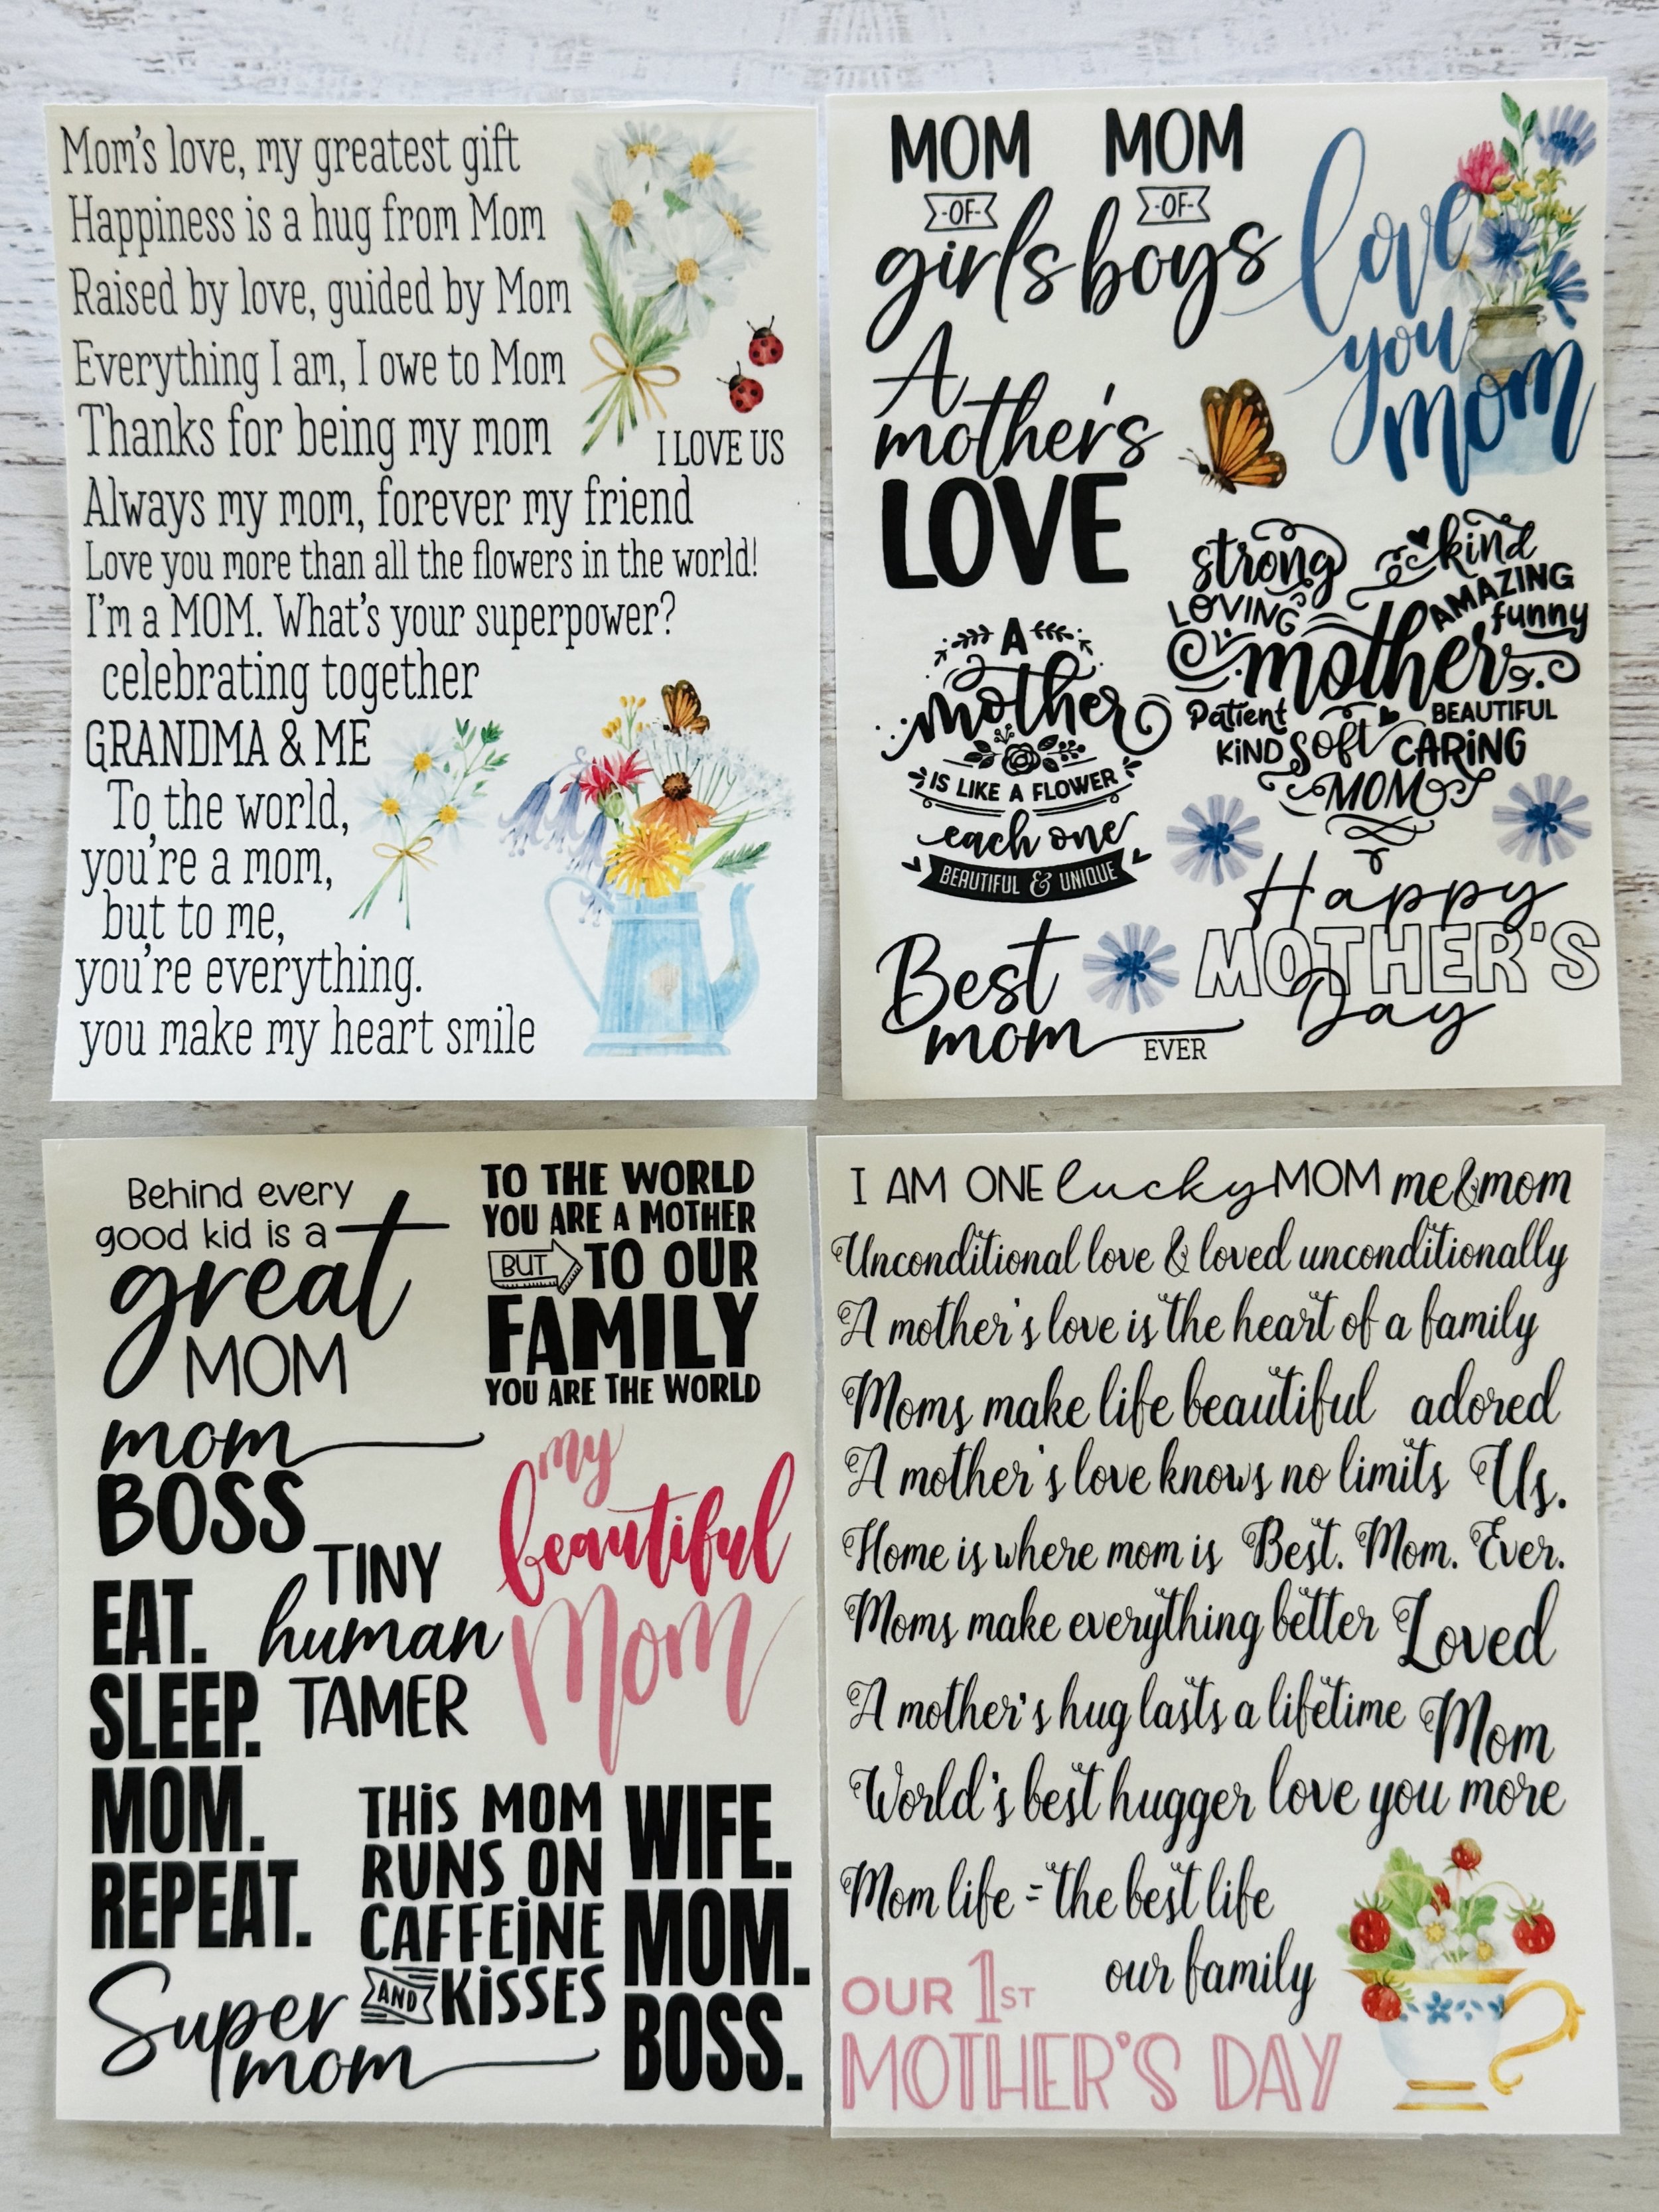 Mom's love, my greatest gift
Happiness is a hug from Mom
Raised by love, guided by Mom
Everything I am, I owe to Mom
Thanks for being my mom
I LOVE US
Always my mom, forever my friend
Love you more than all the flowers in the world!
I'm a MOM. What's your superpower?
celebrating together
GRANDMA & ME
To the world,
you're a mom,
but to me,
you're everything.
you make my heart smile
MOM
-OF-
girls
MOM
-OF-
boys
love
you
mom
A
mother's
LOVE
strong
kind
LOVING
AMAZING
funny
mother
Patient
BEAUTIFUL
KIND
soft
CARING
MOM
A
mother
IS LIKE A FLOWER
each one
BEAUTIFUL & UNIQUE
Happy
MOTHER'S
Day
Best
mom
EVER
Behind every
good kid is a
great
MOM
TO THE WORLD
YOU ARE A MOTHER
BUT TO OUR
FAMILY
YOU ARE THE WORLD
mom
BOSS
my
beautiful
Mom
TINY
human
TAMER
EAT.
SLEEP.
MOM.
REPEAT.
THIS MOM
RUNS ON
CAFFEINE
AND KISSES
WIFE.
MOM.
BOSS.
Super
mom
I AM ONE lucky MOM me&mom
Unconditional love & loved unconditionally
A mother's love is the heart of a family
Moms make life beautiful adored
A mother's love knows no limits Us.
Home is where mom is Best. Mom. Ever.
Moms make everything better Loved
A mother's hug lasts a lifetime Mom
World's best hugger love you more
Mom life = the best life
our family
OUR 1ST
MOTHER'S DAY